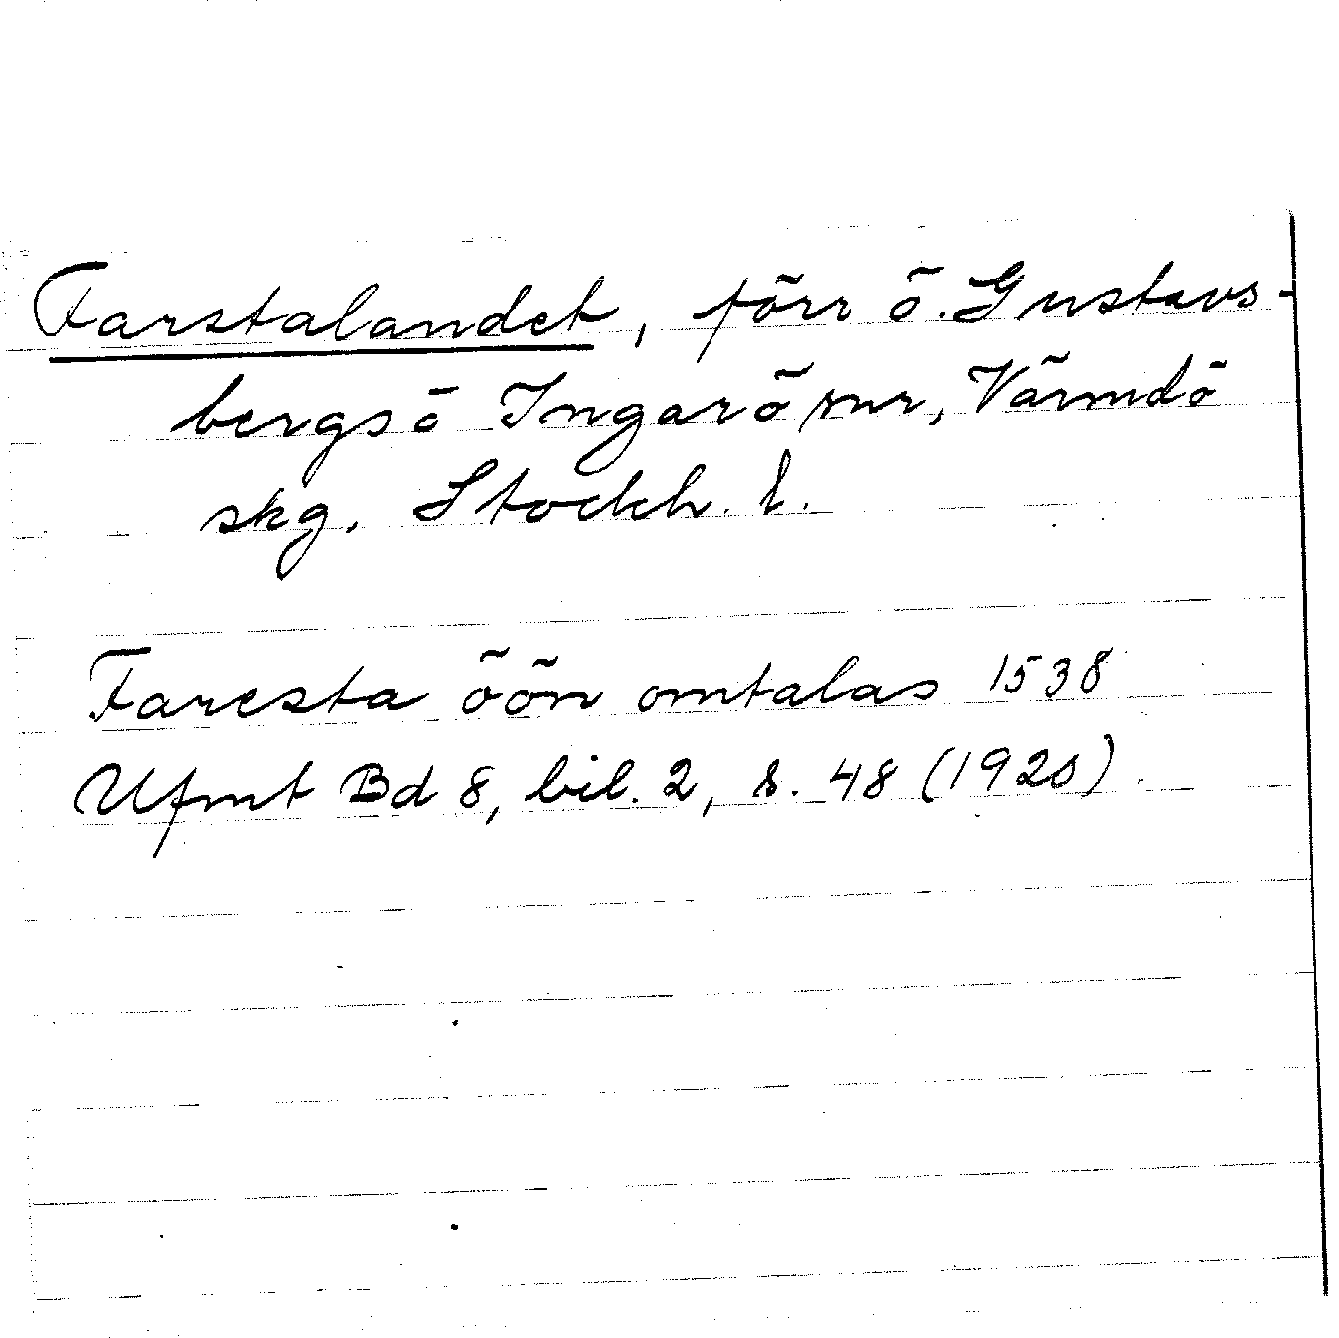 Farstalandet, förr ö. Gustavs-
bergsö Ingarö snr, Värmdö
skg, Stockh. l.
Faresta öön omtalas 1538
Ufmt Bd 8, bil. 2, s. 48 (1920)